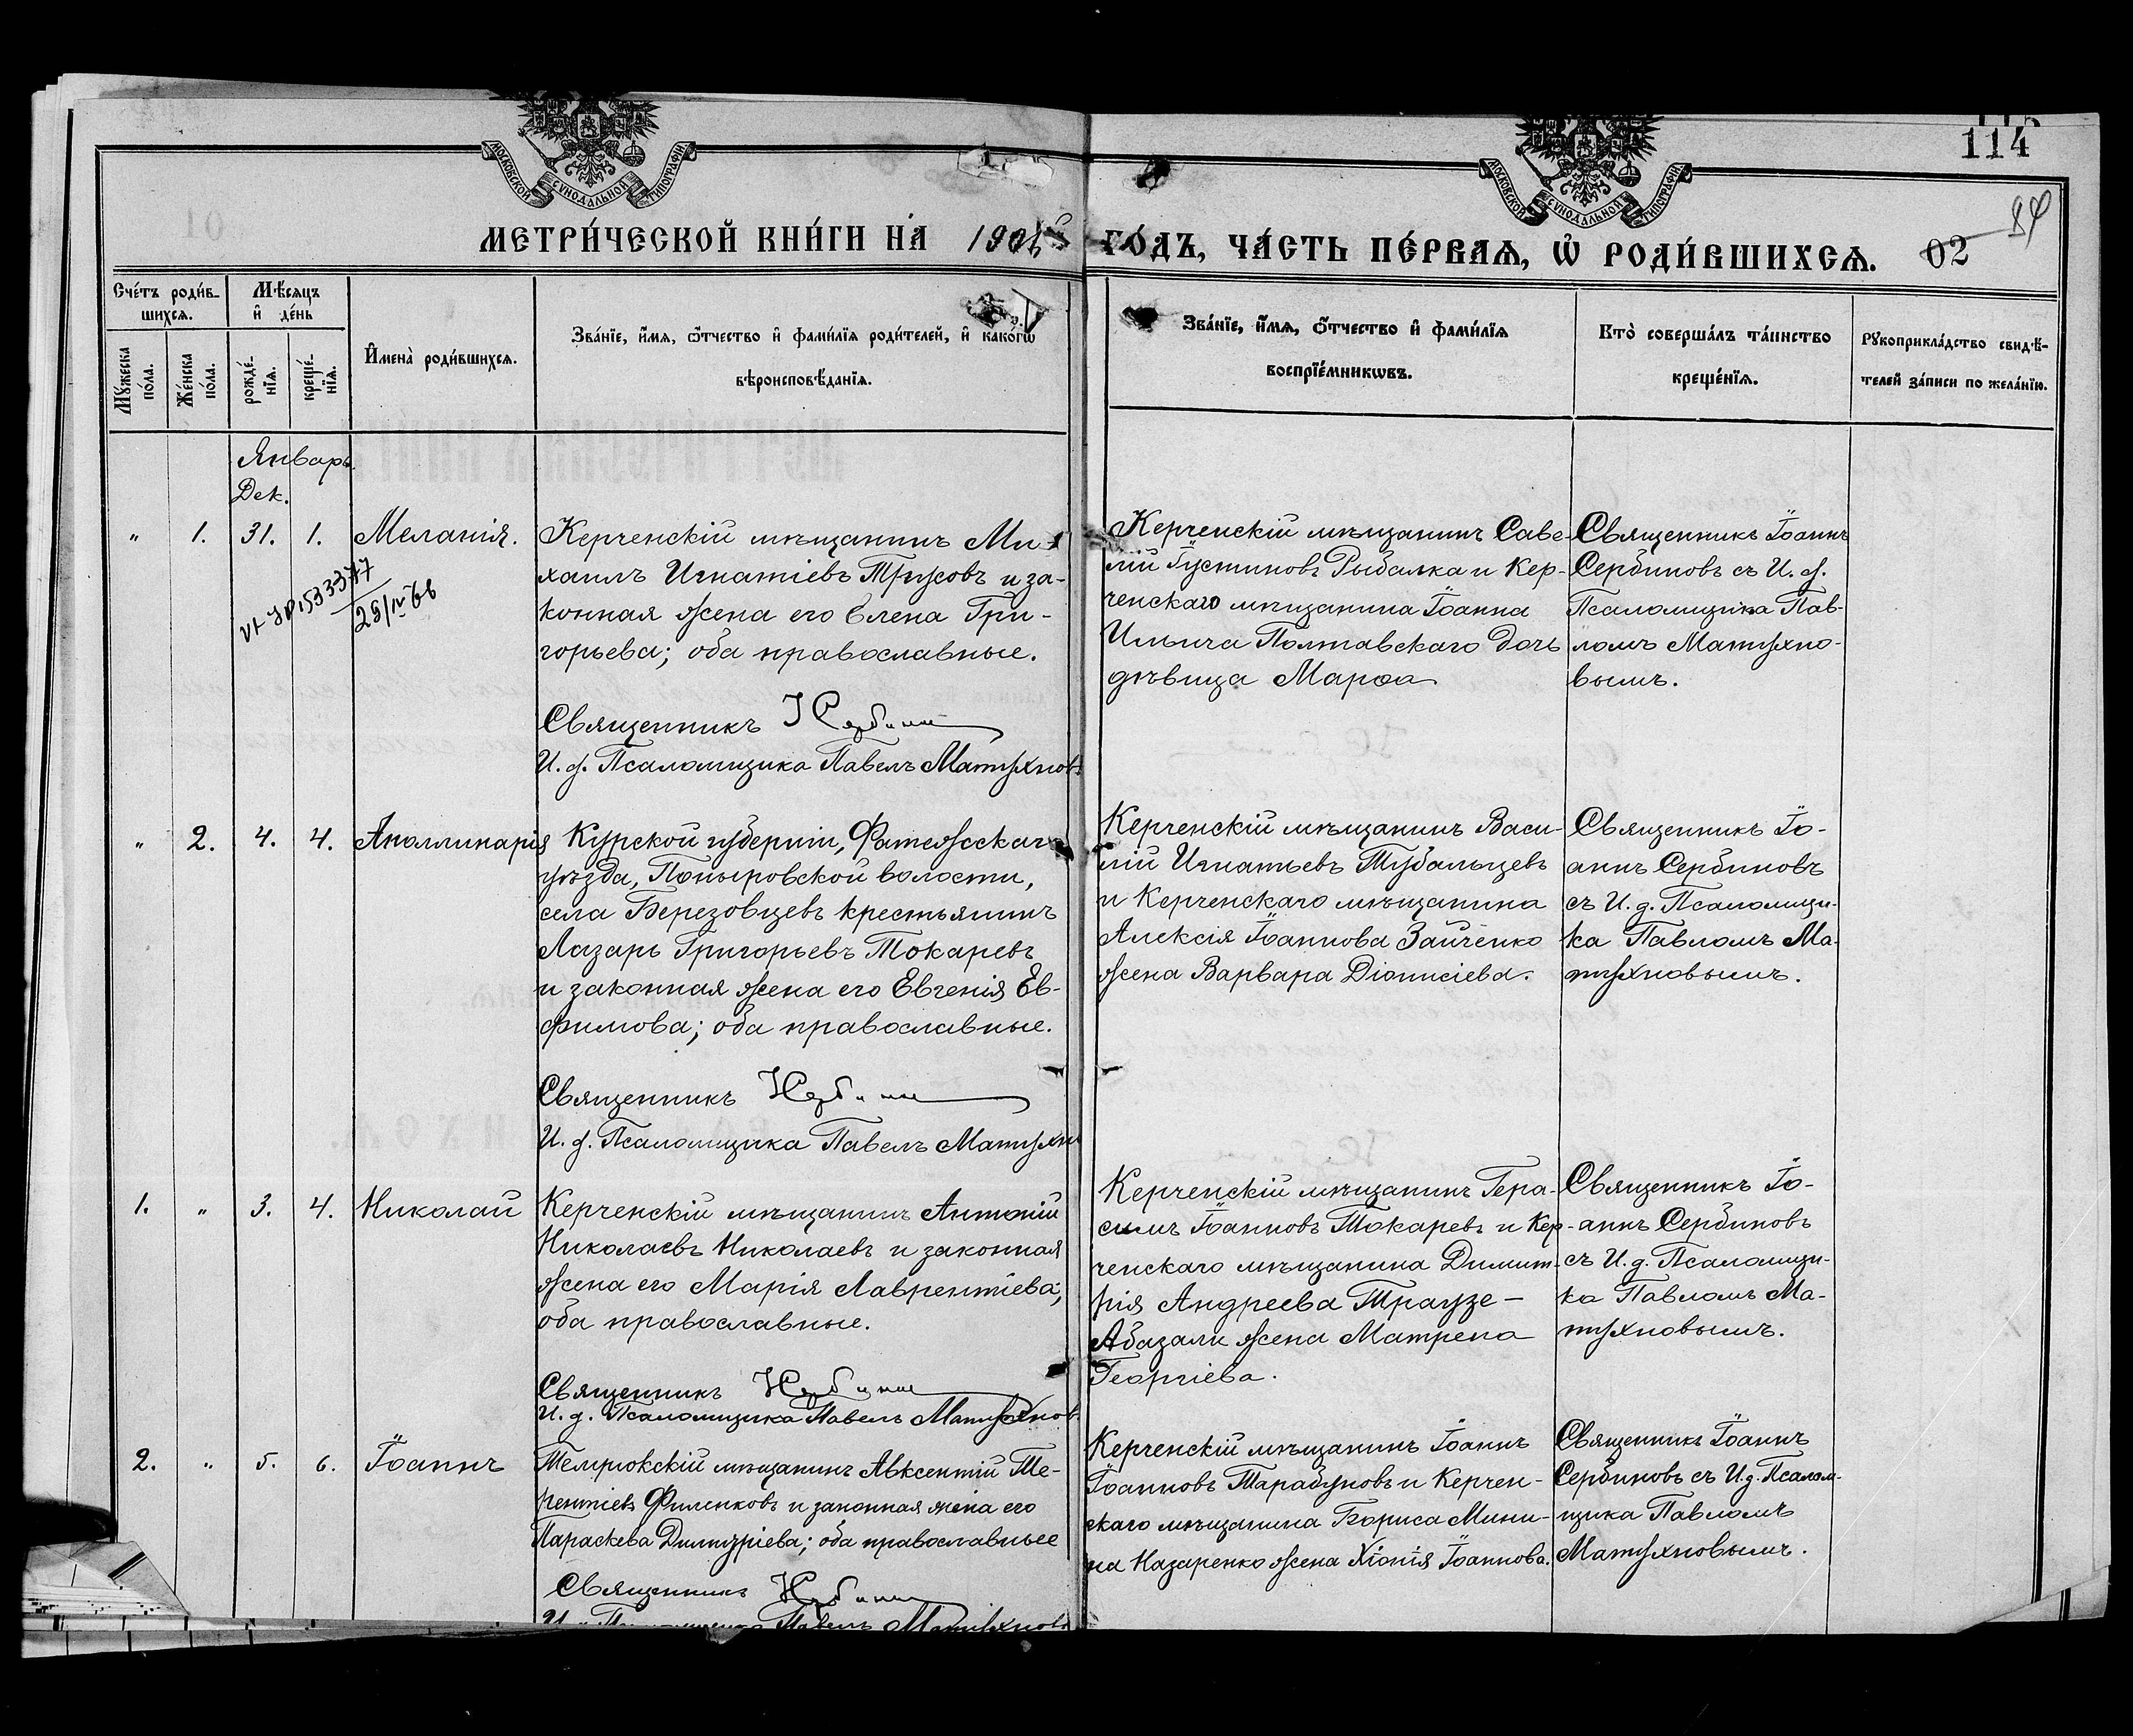 МОСКОВСКОЙ СѴНОДАЛЬНОЙ ТИПОГРАФІИ
МОСКОВСКОЙ СѴНОДАЛЬНОЙ ТИПОГРАФІИ
114
МЕТРИ́ЧЕСКОЙ КНИ́ГИ НА̀
ГО́ДЪ, ЧА́СТЬ ПЕ́РВАѦ, Ѡ҆ РОДИ́ВШИХСѦ.
02
Сче́тъ роди́в-
шихсѧ.
Мꙋ́жеска
по́ла.
Же́нска
по́ла.
Мѣ́сѧцъ
и҆ де́нь
рожде́-
нїѧ.
креще́-
нїѧ.
И҆мена̀ роди́вшихсѧ.
Зва́нїе, и҆́мѧ, ѻ҆́тчество и҆ фами́лїѧ роди́телей, и҆ како́гѡ
вѣроисповѣ́данїѧ.
Зва́нїе, и҆́мѧ, ѻ҆́тчество и҆ фами́лїѧ
воспрїе́мникѡвъ.
Кто̀ соверша́лъ та́инство
креще́нїѧ.
Рꙋкоприкла́дство свидѣ́-
телей за́писи по жела́нїю.
Январь.
Дек.
„ 1. 31. 1. Меланія.
Керченскій мѣщанинъ Ми-
хаилъ Игнатіевъ Трусовъ и за-
конная жена его Елена Гри-
горьева; оба православные.
Священникъ
И. д. Псаломщика Павелъ Матухновъ
Керченскій мѣщанинъ Саве-
лій Іустиновъ Рыбалка и Кер-
ченскаго мѣщанина Іоанна
Ильича Полтавскаго дочь
дѣвица Марѳа
Священникъ Іоаннъ
Сербиновъ съ И. д.
Псаломщика Пав-
ломъ Матухно-
вымъ.
„ 2. 4. 4. Аполлинарія
Курской губерніи, Фатежскаго
уѣзда, Поныровской волости,
села Березовцевъ крестьянинъ
Лазарь Григорьевъ Токаревъ
и законная жена его Евгенія Ев-
фимова; оба православные.
Священникъ
И. д. Псаломщика Павелъ Матухн
Керченскій мѣщанинъ Васи-
лій Игнатьевъ Тубальцевъ
и Керченскаго мѣщанина
Алексія Іоаннова Зайченко
жена Варвара Діонисіева.
Священникъ Іо-
аннъ Сербиновъ
съ И. д. Псаломщи-
ка Павломъ Ма-
тухновымъ.
1. „ 3. 4. Николай
Керченскій мѣщанинъ Антоній
Николаевъ Николаевъ и законная
жена его Марія Лаврентіева;
оба православные.
Священникъ
И. д. Псаломщика Павелъ Матухнов.
Керченскій мѣщанинъ Гера-
симъ Іоанновъ Токаревъ и Кер-
ченскаго мѣщанина Димит-
рія Андреева Траузе-
Абазали жена Матрена
Георгіева.
Священникъ Іо-
аннъ Сербиновъ
съ И. д. Псаломщи-
ка Павломъ Ма-
тухновымъ.
2. „ 5. 6. Іоаннъ
Темрюкскій мѣщанинъ Авксентій Те-
рентіевъ Филенковъ и законная жена его
Параскева Димитріева; оба православные
Священникъ
Павелъ Матухновъ
Керченскій мѣщанинъ Іоаннъ
Іоанновъ Тарабуновъ и Керчен-
скаго мѣщанина Бориса Мини-
на Назаренко жена Хіонія Іоаннова.
Священникъ Іоаннъ
Сербиновъ съ И. д. Псалом-
щика Павломъ
Матухновымъ.